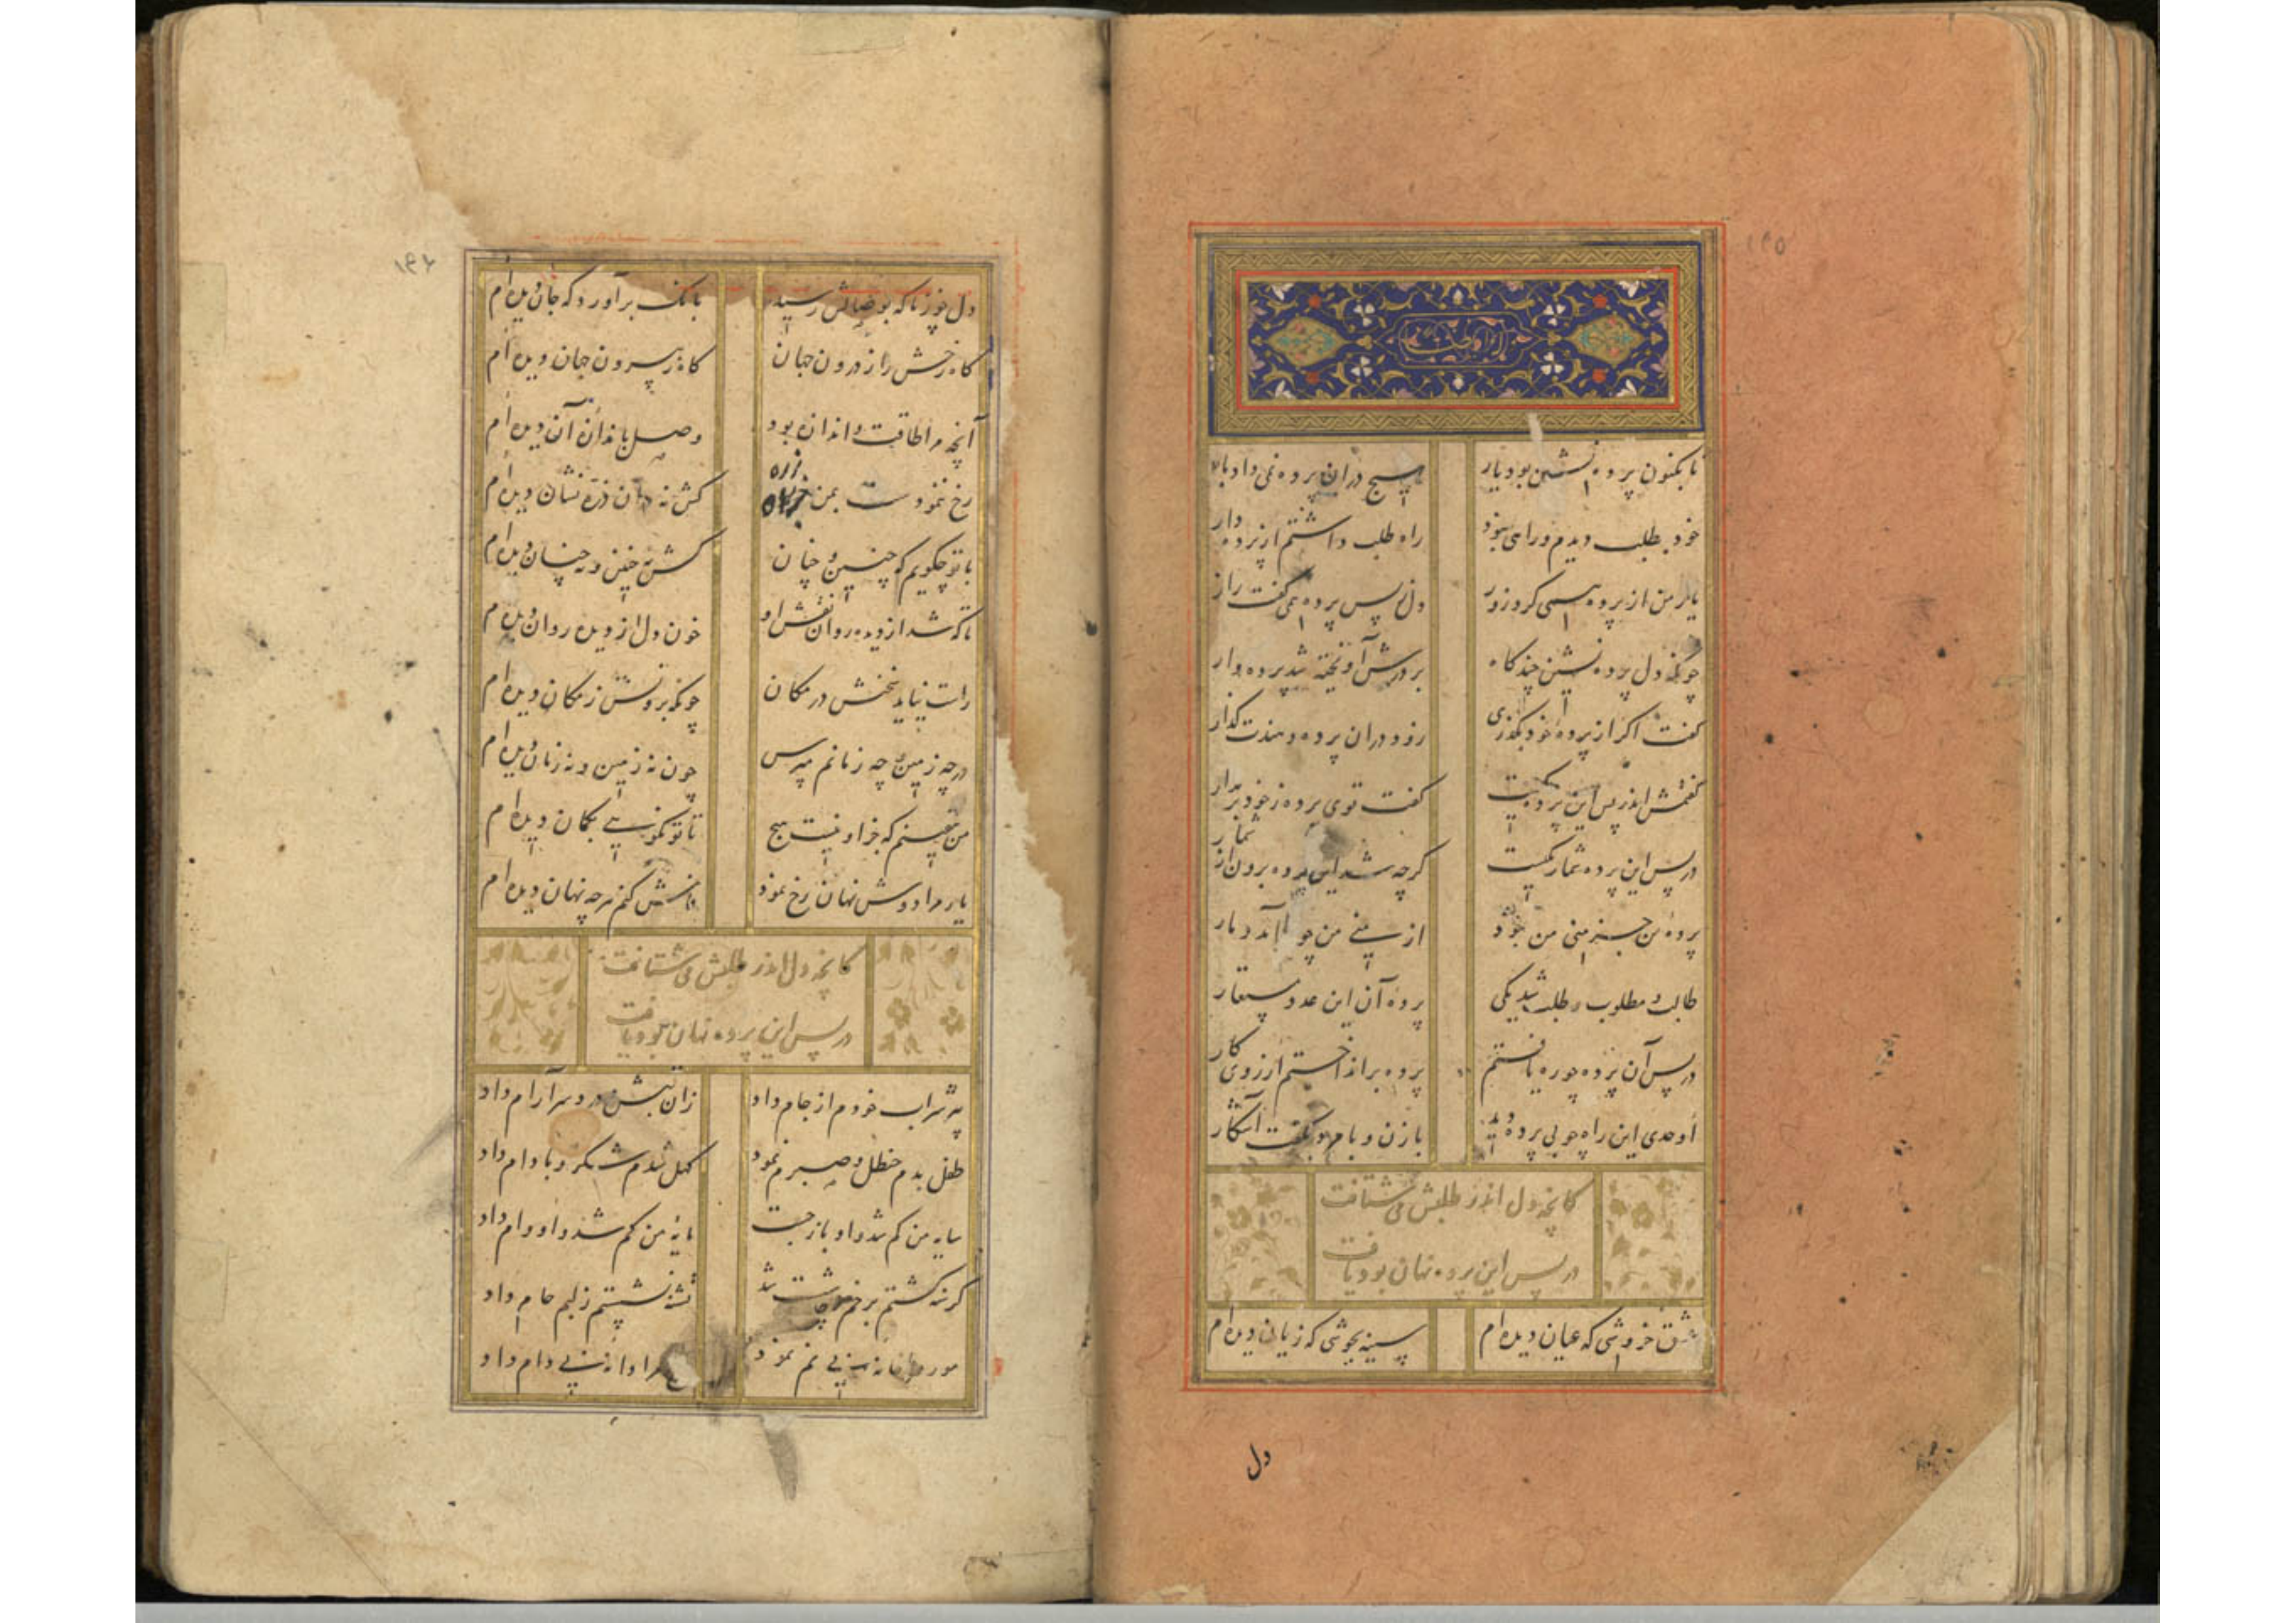 ۱۴۵
تا بکنون پرده نشین بود یار
هیچ در این پرده نمی‌داد بار
خود بطلب دیدم و راهی نبود
راه طلب داشتم از پرده دار
یار من از پرده بسی کرد زور
دل ز پس پرده همی گفت راز
چونکه دل پرده نشین چند گاه
بر درش آویخته شد پرده وار
گفت اگر از پردهٔ خود بگذری
زود در آن پرده دهندت گذار
گفتمش اندر پس این پرده کیست
گفت توی پرده ز خود بر مدار
در پس این پرده شمار یکیست
گرچه شد این پرده برون از شمار
پردهٔ من جز منی من نبود
از منی من چو بر آمد دمار
طالب و مطلوب و طلب شد یکی
پردهٔ آن این عدد مستعار
در پس آن پرده چو ره یافتم
پرده بر انداختم از روی کار
اوحدی این راه چو بی پرده دید
باز ن و بام بگفت آشکار
کانچه دل اندر طلبش می شتافت
در پس این پرده نهان بود یافت
عشق خروشی که عیان دیده‌ام
سینه بجوشی که زیان دیده‌ام
دل
۱۴۶
دل چو ز خاکه بوصالش رسید
بانک بر آورد که جان دیده‌ام
گاه رخش را ز درون جهان
گاه ز بیرون جهان دیده‌ام
آنچه مرا طاقت و اندازه بود
وصل باندازهٔ آن دیده‌ام
رخ ننمودست بمن ذره
کش نه در آن ذره نشان دیده‌ام
با تو چگویم که چنین و چنان
کش نه چنین و نه چنان دیده‌ام
تا که شد از دیده روان نقش او
خون دل از دیده روان دیده‌ام
راست نیاید سخنش در مکان
چونکه برونش ز مکان دیده‌ام
در چه زمین و چه زمانم مپرس
چون نه زمین و نه زمان دیده‌ام
من بیقینم که جز او نیست هیچ
تا تو نگویی بگمان دیده‌ام
یار مرا دوش نهان رخ نمود
فاش کنم هرچه نهان دیده‌ام
کانچه دل اندر طلبش می شتافت
در پس این پرده نهان بود یافت
شراب خودم از جام داد
زان تپش و درد سر آرام داد
طفل بدم حنظل و صبرم نمود
کهل شدم شکر و بادام داد
سایه من گم شد و او باز جست
مایهٔ من کم شد و او وام داد
گرسنه گشتم بر خم چاشت شد
تشنه نشستم ز لبم جام داد
مور خانه نمود
مرا دانهٔ بی دام داد